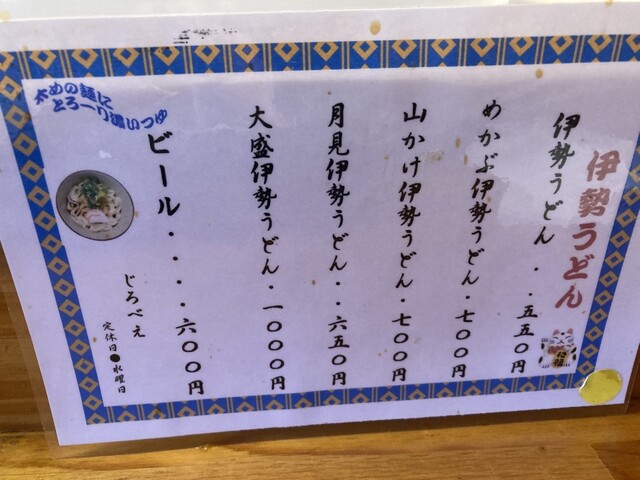 伊勢うどん
伊勢うどん・・五五〇円
めかぶ伊勢うどん・七〇〇円
山かけ伊勢うどん・七〇〇円
月見伊勢うどん・・六五〇円
大盛伊勢うどん・一〇〇〇円
ビール・・・・六〇〇円
太めの麺に
とろーり濃いつゆ
じろべえ
定休日●水曜日